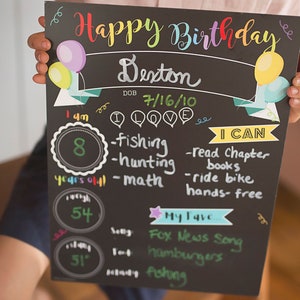 Happy Birthday
Dexton
DOB 7/16/10
I am
8
years old!
I LOVE
-fishing
-hunting
-math
I CAN
-read Chapter
books
-ride bike
hands-free
I weigh
54
My Favs
Song Fox News Song
Food hamburgers
Activity fishing
51"